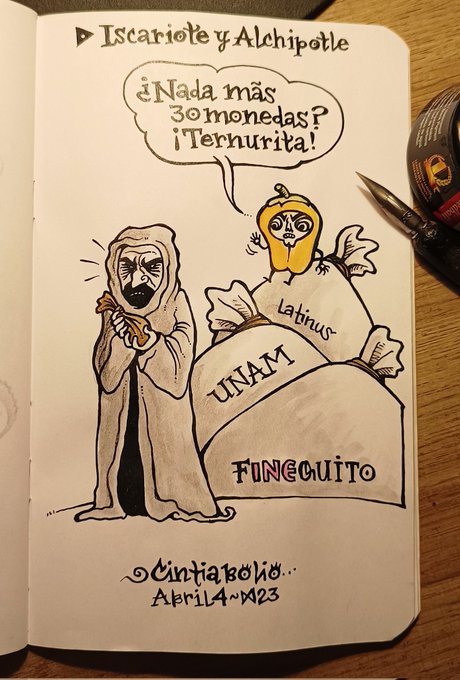 Iscariote y Alchipotle
¿Nada más
30 monedas?
¡Ternurita!
Latinus
UNAM
FINEGUITO
Cintiabolio...
Abril 4~23